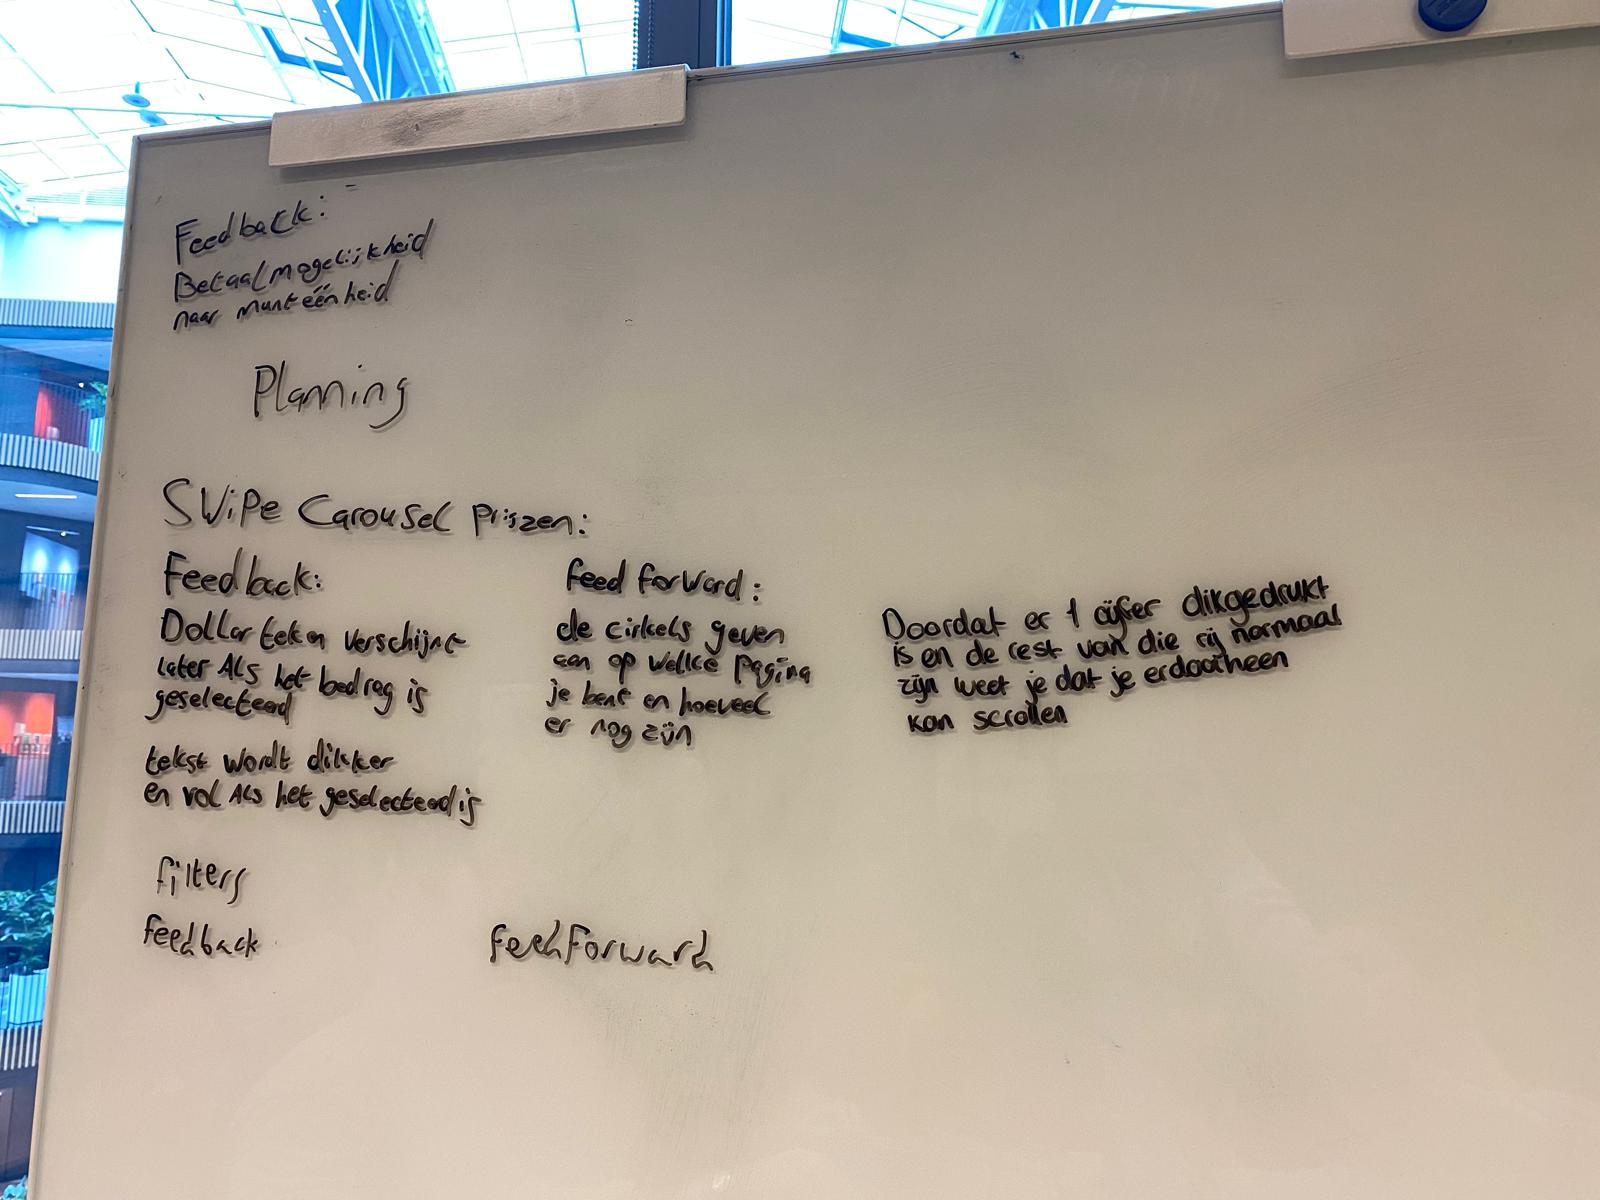 Feedback:
Betaalmogelijkheid
naar munteénheid
Planning
Swipe Carousel prijzen:
Feedback:
Dollar teken verschijnt
later Als het bedrag is
geselecteerd
tekst wordt dikker
en vol Als het geselecteerd is
feed forward:
de cirkels geven
aan op welke pagina
je bent en hoeveel
er nog zijn
Doordat er 1 cijfer dikgedrukt
is en de rest van die rij normaal
zijn weet je dat je erdoorheen
kan scrollen
filters
feedback
feedforward